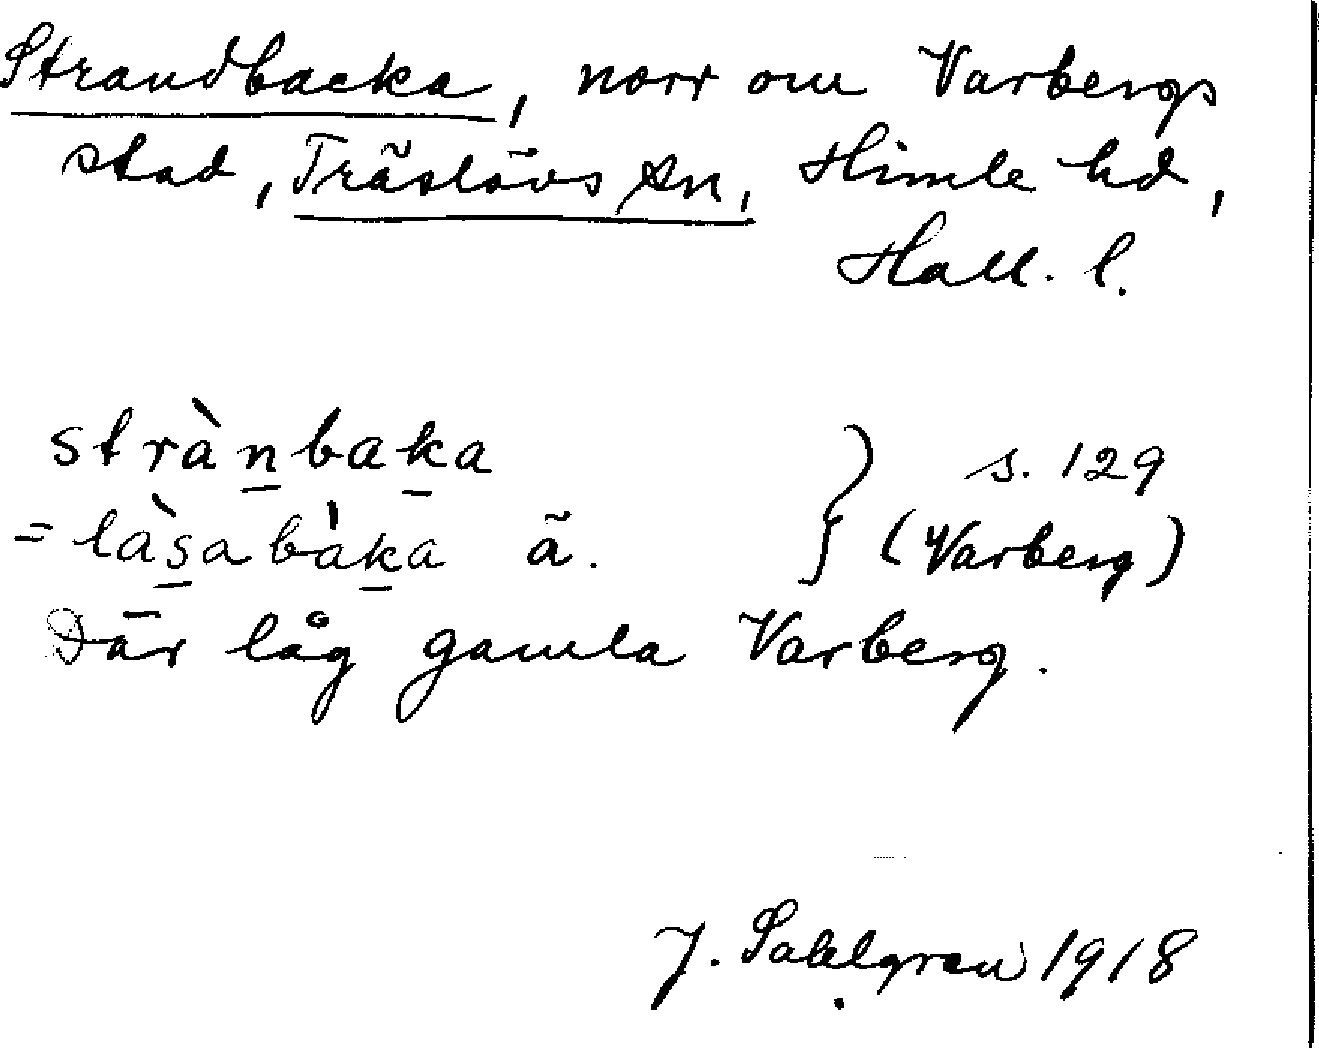 Strandbacka, norr om Varbergs
stad, Träslövs sn, Himle hd,
Hall. l.
strànbaka } s. 129
= làsabàka ä. } (Varberg)
Där låg gamla Varberg.
J. Sahlgren 1918